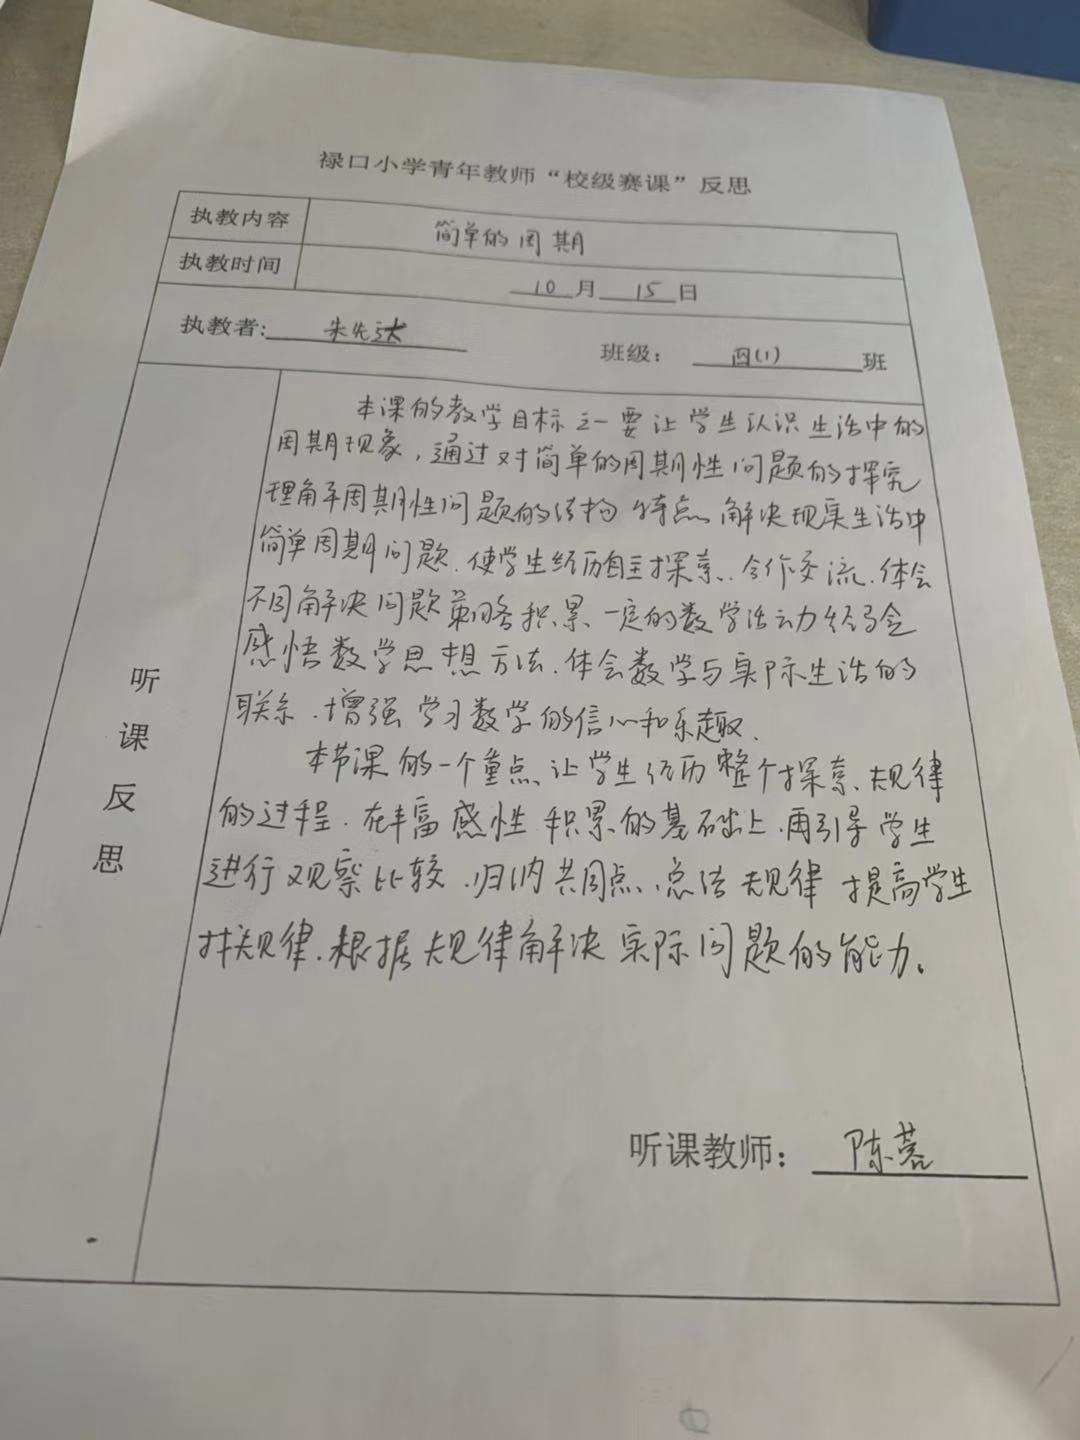 禄口小学青年教师“校级赛课”反思
执教内容 简单的周期
执教时间 10月15日
执教者: 朱先达 班级: 四(1)班
听课反思
本课的教学目标之一要让学生认识生活中的
周期现象,通过对简单的周期性问题的探究
理解周期性问题的结构特点、解决现实生活中
简单周期问题、使学生经历自主探索、合作交流、体会
不同解决问题策略积累一定的数学活动经验
感悟数学思想方法、体会数学与实际生活的
联系、增强学习数学的信心和乐趣、
本节课的一个重点、让学生经历整个探索、规律
的过程、在丰富感性积累的基础上、再引导学生
进行观察比较、归纳共同点、总结规律提高学生
找规律、根据规律解决实际问题的能力。
听课教师: 陈蓉